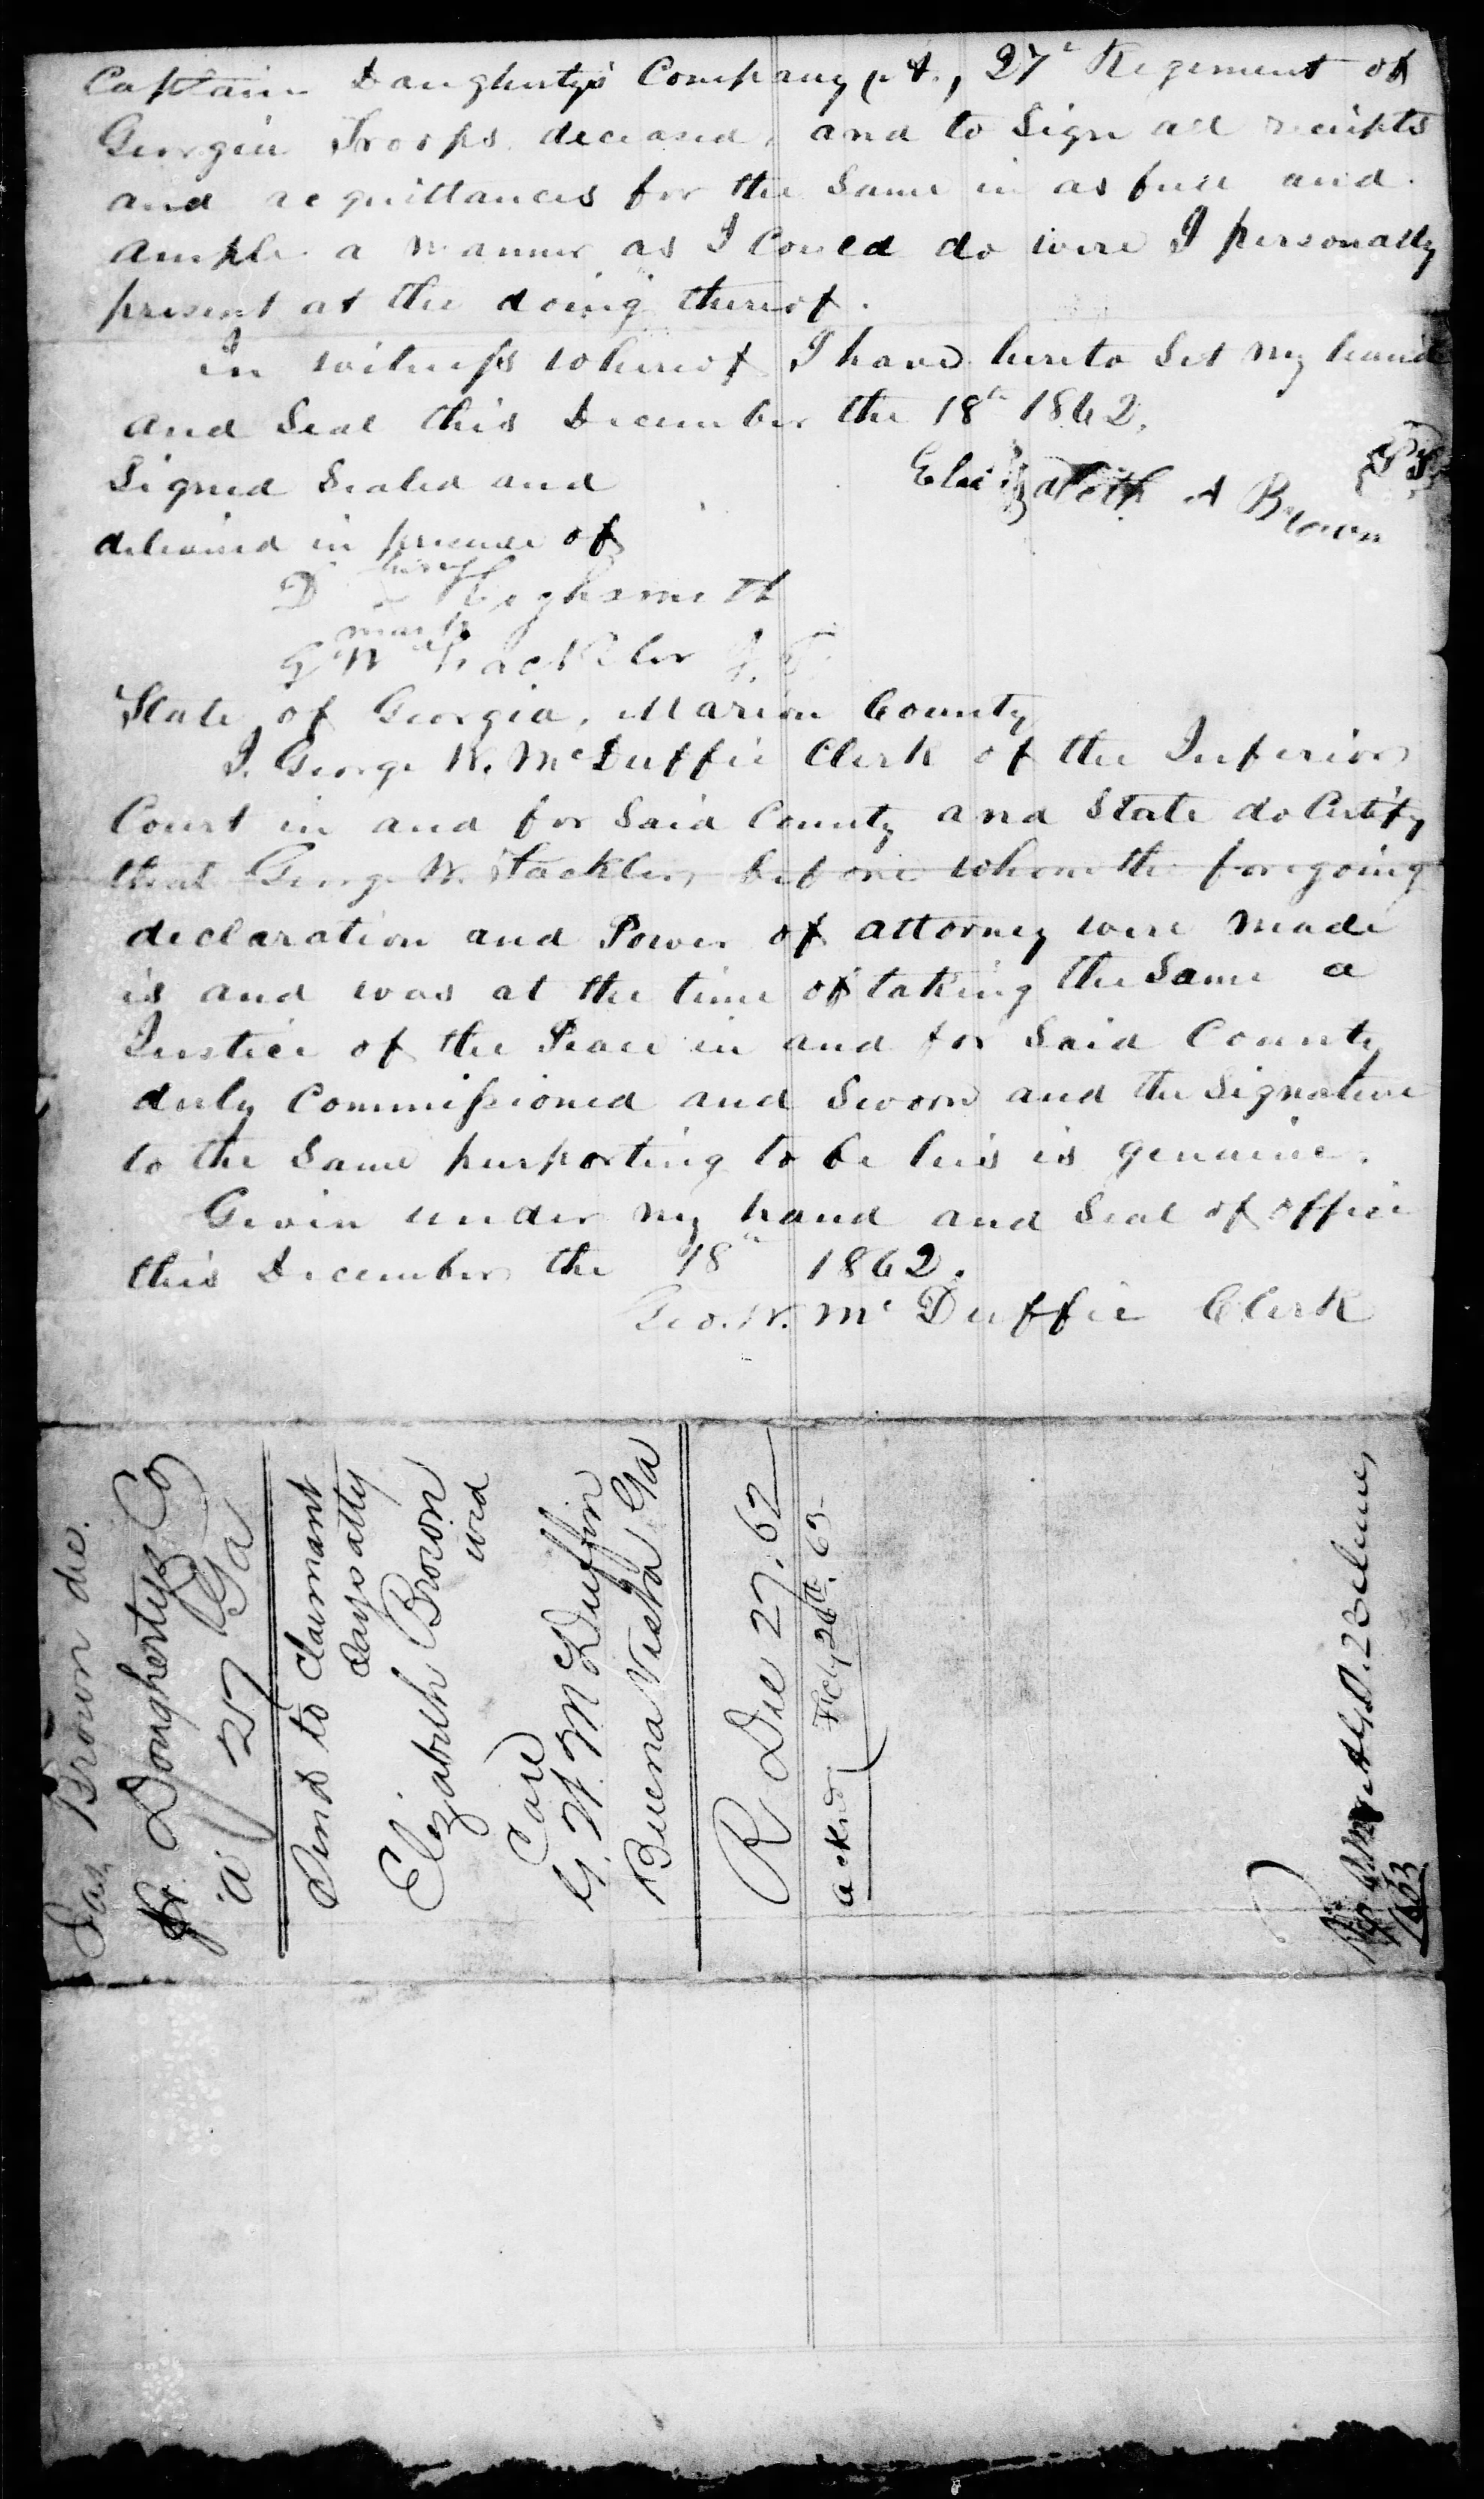 Captain Daughertys Company (A), 27th Regiment of
Georgia Troops deceased, and to Sign all receipts
and acquittances for the Same in as full and
ample a manner as I Could do were I personally
present at the doing thereof.
In witness whereof I have hereto Set my hand
and Seal this December the 18th 1862.
Signed Sealed and
delivered in presence of
Elizabeth A Brown
D his Highsmith
mark
G W Stackler J.P.
State of Georgia, Marion County
I. George W. McDuffie Clerk of the Inferior
Court in and for Said County and State do Certify
that George W. Stackler, before whom the foregoing
declaration and Power of attorney were made
is and was at the time of taking the Same a
Justice of the Peace in and for Said County
duly Commissioned and Sworn and the Signature
to the Same purporting to be his is genuine.
Givin under my hand and Seal of office
this December the 18th 1862.
Geo. W. McDuffie Clerk
Jas Brown dec.
Doughertys Co
"A" 27 Ga
Send to Claimant
Says atty
Elizabeth Brown
wid
Care
G. W. McDuffin
Buena Vista Ga
R Dec 27. 62
ackd Feby 26th. 63
1863